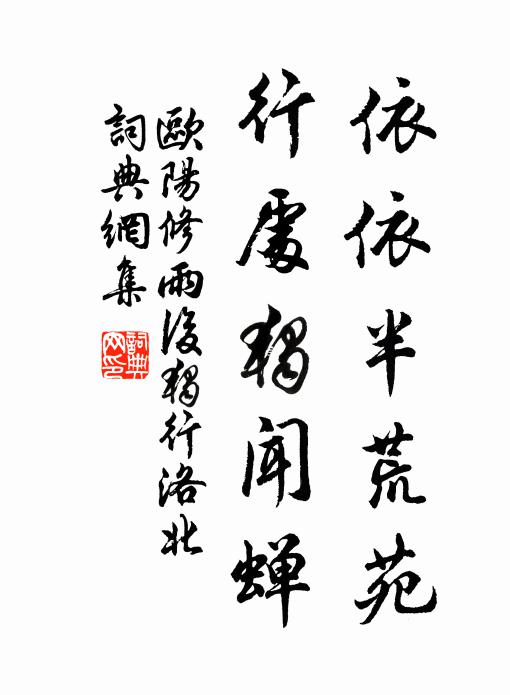 依依半荒苑
行處獨聞蝉
歐陽修雨後獨行洛北
詞典網集
詞典网印